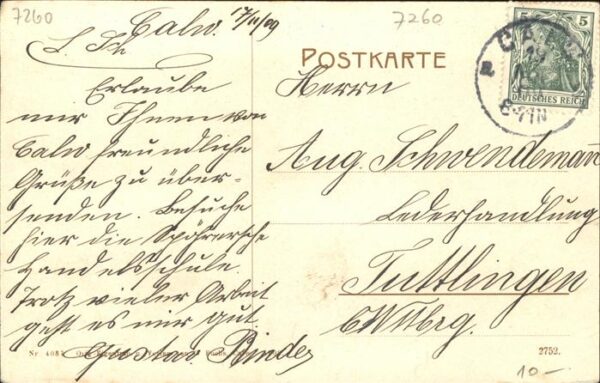 7260
Calw. 17/11/09
Erlaube
mir Ihnen von
Calw freundliche
Grüße zu über-
senden. Besuche
hier die Spöhrersche
Handelsschule.
Trotz vieler Arbeit
geht es mir gut
Gustav Binder
Nr 408
7260
POSTKARTE
5 5
DEUTSCHES REICH
CALW
Herrn
Aug. Schwendemann
Lederhandlung
Tuttlingen
Wttbrg.
2752.
10 -